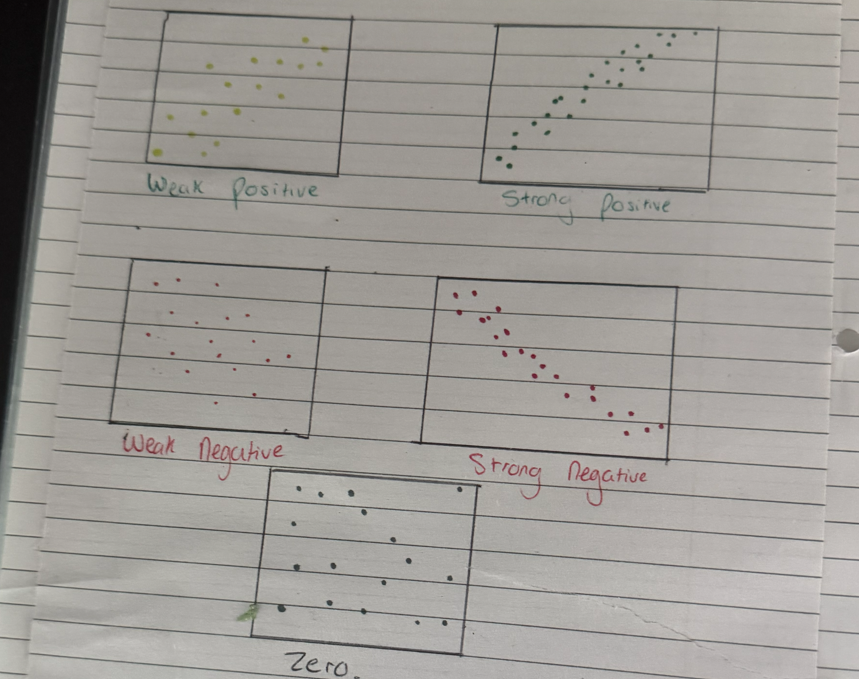 Weak positive
Strong positive
Weak negative
Strong negative
Zero.